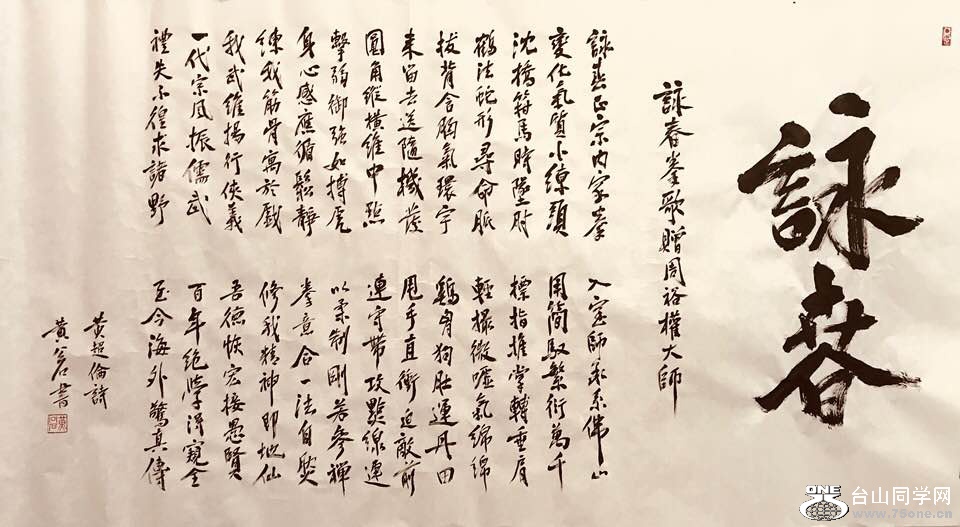 詠春
詠春拳歌贈周裕權大師
詠春正宗內家拳 入室師承系佛山
變化氣質小練頭 用簡馭繁衍萬千
沈橋箝馬時墜肘 標指推掌轉垂肩
鶴法蛇形尋命脈 輕撮微噓氣綿綿
拔背含胸氣環宇 雞胃狗肚運丹田
來留去送隨機發 甩手直衝迫敵前
圓角縱橫維中點 連守帶攻點線連
擊弱御強如搏虎 以柔制剛若參禪
身心感應循鬆靜 拳意合一法自然
練我筋骨寓於戲 修我精神即地仙
我武維揚行俠義 吾德恢宏接愚賢
一代宗風振儒武 百年絕學得窺全
禮失不徨求諸野 至今海外驚真傳
黃超倫詩
黃 書
ONE
台山同学网
www.79one.cn